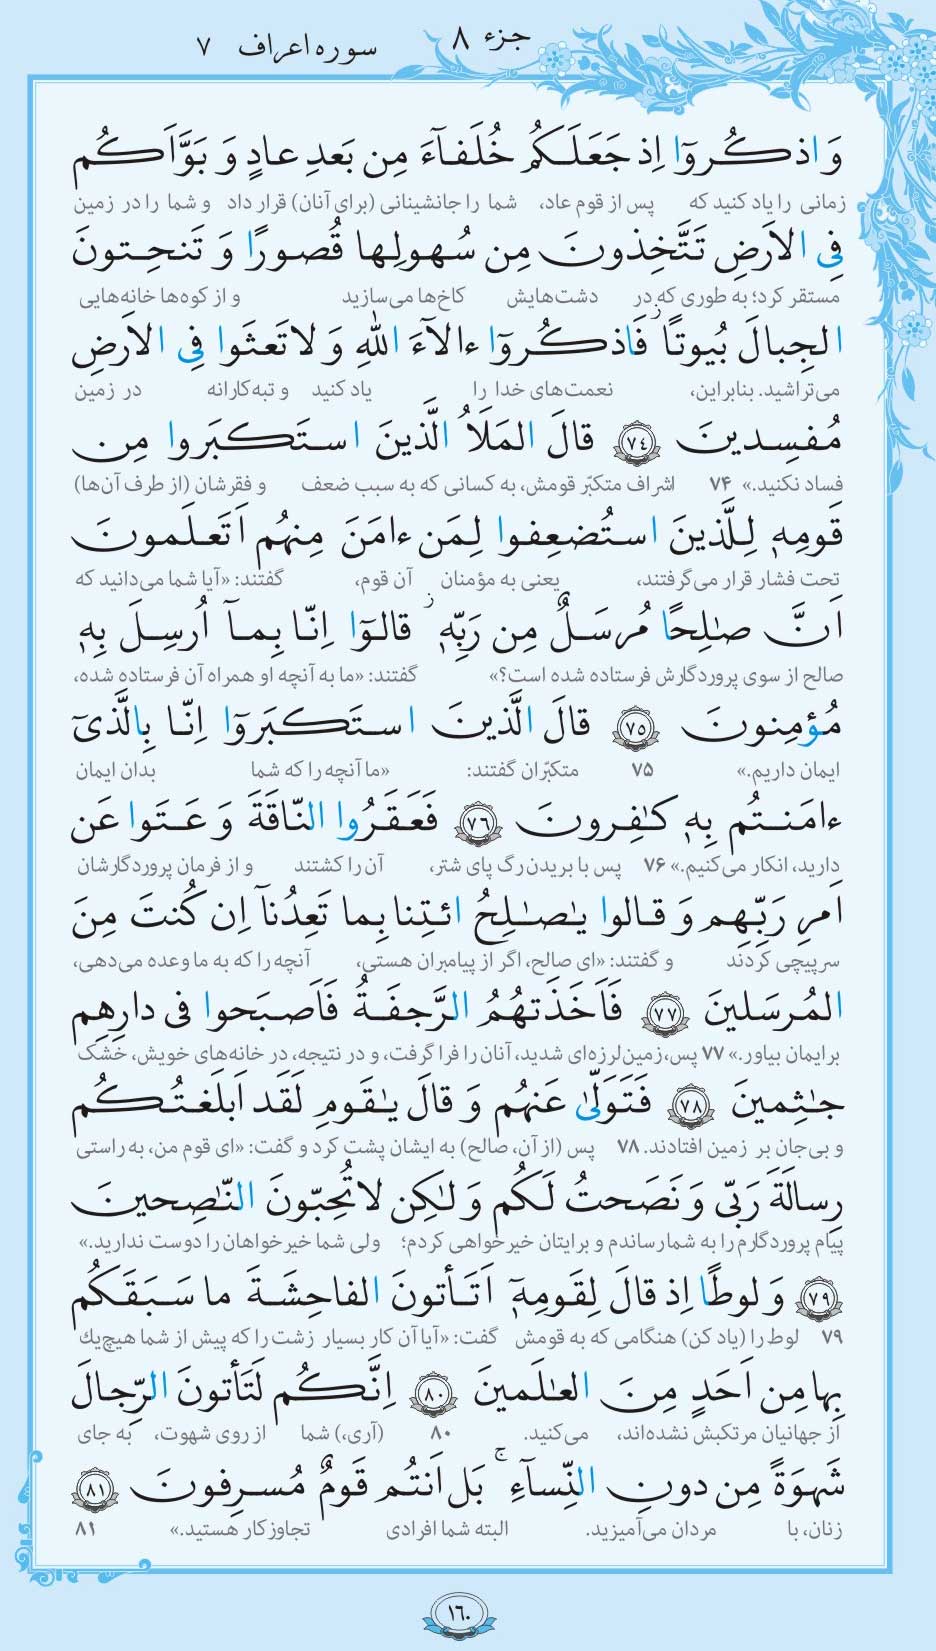 جزء ۸ سوره اعراف ۷
وَ اذكُروٓا اِذ جَعَلَكُم خُلَفآءَ مِن بَعدِ عادٍ وَ بَوَّاَكُم
زمانی را یاد کنید که پس از قوم عاد، شما را جانشینانی (برای آنان) قرار داد و شما را در زمین
فِی الاَرضِ تَتَّخِذونَ مِن سُهولِها قُصورًا وَ تَنحِتونَ
مستقر کرد؛ به طوری که در دشت‌هایش کاخ‌ها می‌سازید و از کوه‌ها خانه‌هایی
الجِبالَ بُیوتًا ۖ فَاذكُروٓا ءالآءَ اللّٰهِ وَ لا تَعثَوا فِی الاَرضِ
می‌تراشید. بنابراین، نعمت‌های خدا را یاد کنید و تبه‌کارانه در زمین
مُفسِدینَ ﴿۷۴﴾ قالَ المَلَاُ الَّذینَ استَكبَروا مِن
فساد نکنید.» ۷۴ اشراف متکبّر قومش، به کسانی که به سبب ضعف و فقرشان (از طرف آن‌ها)
قَومِهٖ لِلَّذینَ استُضعِفوا لِمَن ءامَنَ مِنهُم اَتَعلَمونَ
تحت فشار قرار می‌گرفتند، یعنی به مؤمنان آن قوم، گفتند: «آیا شما می‌دانید که
اَنَّ صٰلِحًا مُرسَلٌ مِن رَبِّهٖ ۚ قالوٓا اِنّا بِمآ اُرسِلَ بِهٖ
صالح از سوی پروردگارش فرستاده شده است؟» گفتند: «ما به آنچه او همراه آن فرستاده شده،
مُؤمِنونَ ﴿۷۵﴾ قالَ الَّذینَ استَكبَروٓا اِنّا بِالَّذیٓ
ایمان داریم.» ۷۵ متکبّران گفتند: «ما آنچه را که شما بدان ایمان
ءامَنتُم بِهٖ كٰفِرونَ ﴿۷۶﴾ فَعَقَرُوا النّاقَةَ وَ عَتَوا عَن
دارید، انکار می‌کنیم.» ۷۶ پس با بریدن رگ پای شتر، آن را کشتند و از فرمان پروردگارشان
اَمرِ رَبِّهِم وَ قالوا یٰصٰلِحُ ائتِنا بِما تَعِدُنآ اِن كُنتَ مِنَ
سرپیچی کردند و گفتند: «ای صالح، اگر از پیامبران هستی، آنچه را که به ما وعده می‌دهی،
المُرسَلینَ ﴿۷۷﴾ فَاَخَذَتهُمُ الرَّجفَةُ فَاَصبَحوا فی دارِهِم
برایمان بیاور.» ۷۷ پس، زمین‌لرزه‌ای شدید، آنان را فرا گرفت، و در نتیجه، در خانه‌های خویش، خشک
جٰثِمینَ ﴿۷۸﴾ فَتَوَلّیٰ عَنهُم وَ قالَ یٰقَومِ لَقَد اَبلَغتُكُم
و بی‌جان بر زمین افتادند. ۷۸ پس (از آن، صالح) به ایشان پشت کرد و گفت: «ای قوم من، به راستی
رِسالَةَ رَبّی وَ نَصَحتُ لَكُم وَ لٰكِن لا تُحِبّونَ النّٰصِحینَ
پیام پروردگارم را به شما رساندم و برایتان خیرخواهی کردم؛ ولی شما خیرخواهان را دوست ندارید.»
﴿۷۹﴾ وَ لوطًا اِذ قالَ لِقَومِهٖٓ اَتَأتونَ الفاحِشَةَ ما سَبَقَكُم
۷۹ لوط را (یاد کن) هنگامی که به قومش گفت: «آیا آن کار بسیار زشت را که پیش از شما هیچ‌یك
بِها مِن اَحَدٍ مِنَ العٰلَمینَ ﴿۸۰﴾ اِنَّكُم لَتَأتونَ الرِّجالَ
از جهانیان مرتکبش نشده‌اند، می‌کنید. ۸۰ (آری،) شما از روی شهوت، به جای
شَهوَةً مِن دونِ النِّسآءِ ۚ بَل اَنتُم قَومٌ مُسرِفونَ ﴿۸۱﴾
زنان، با مردان می‌آمیزید. البته شما افرادی تجاوزکار هستید.» ۸۱
۱۶۰